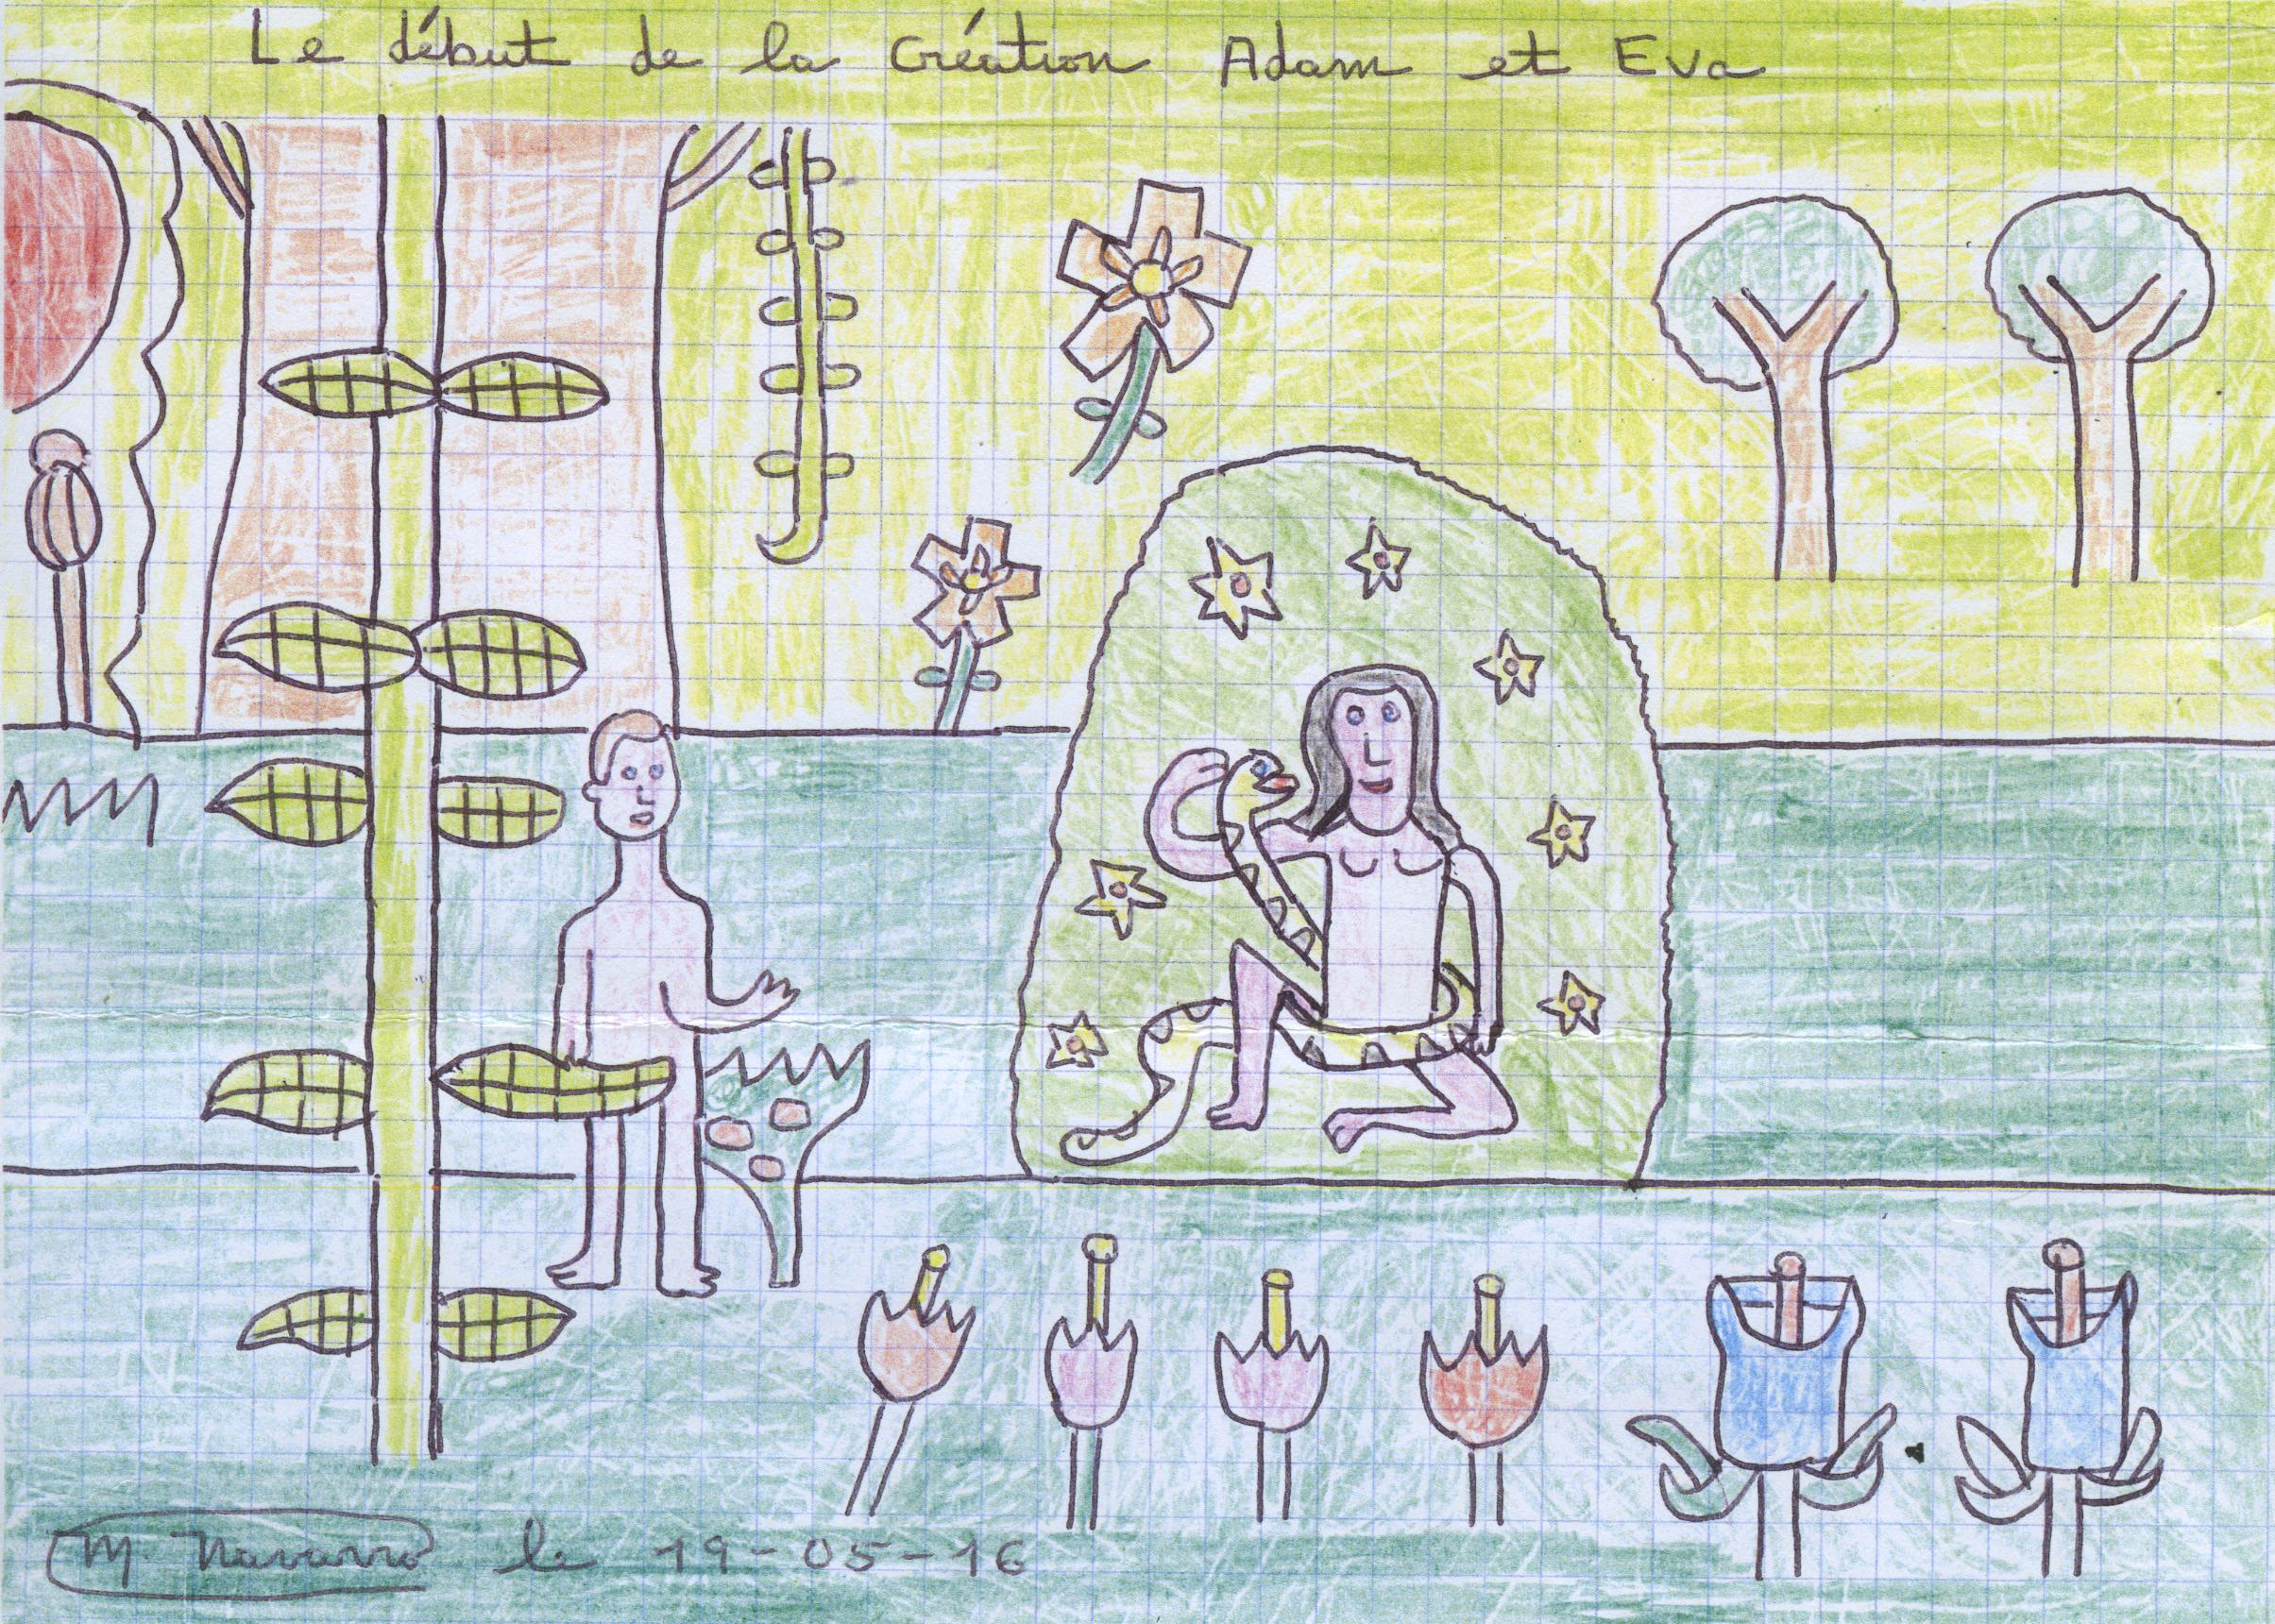 Le début de la Création Adam et Eva
M. Navarro le 19-05-16